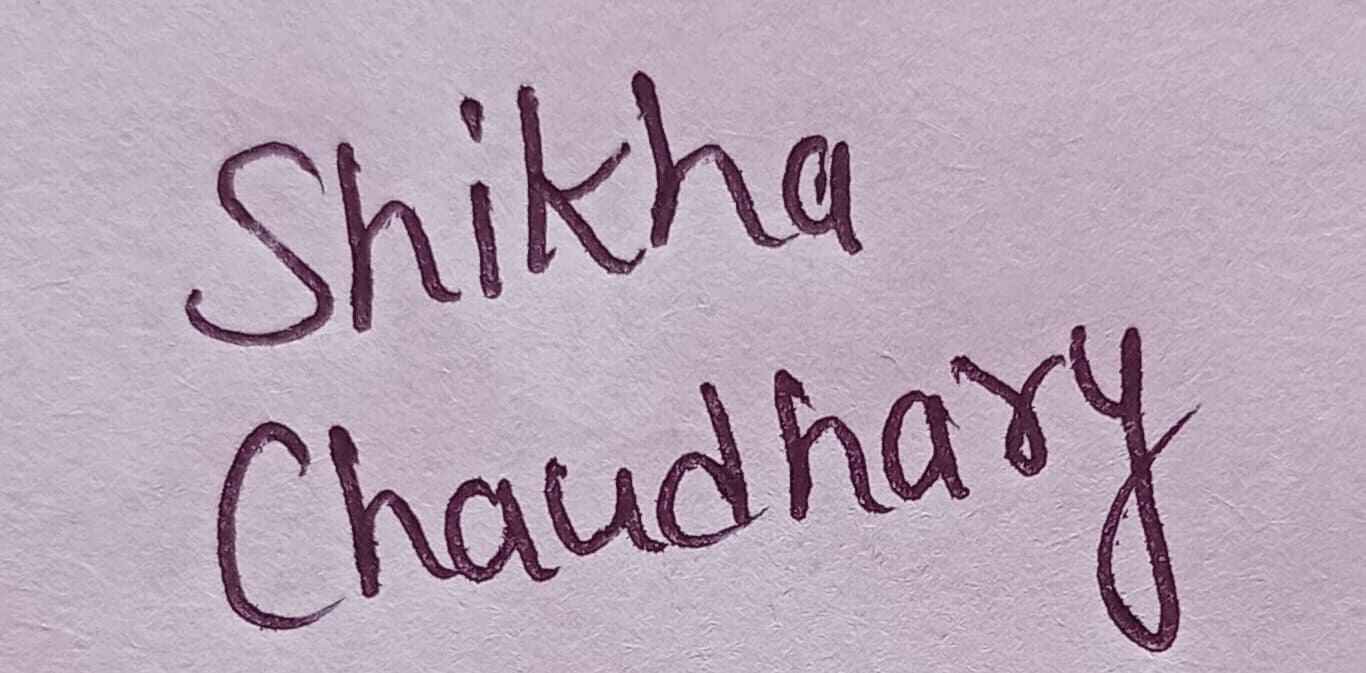 Shikha
Chaudhary